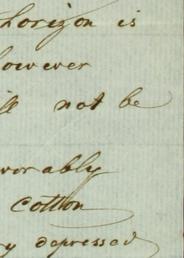 horizon is
however
ill not be
vorably
cotton
y depressed